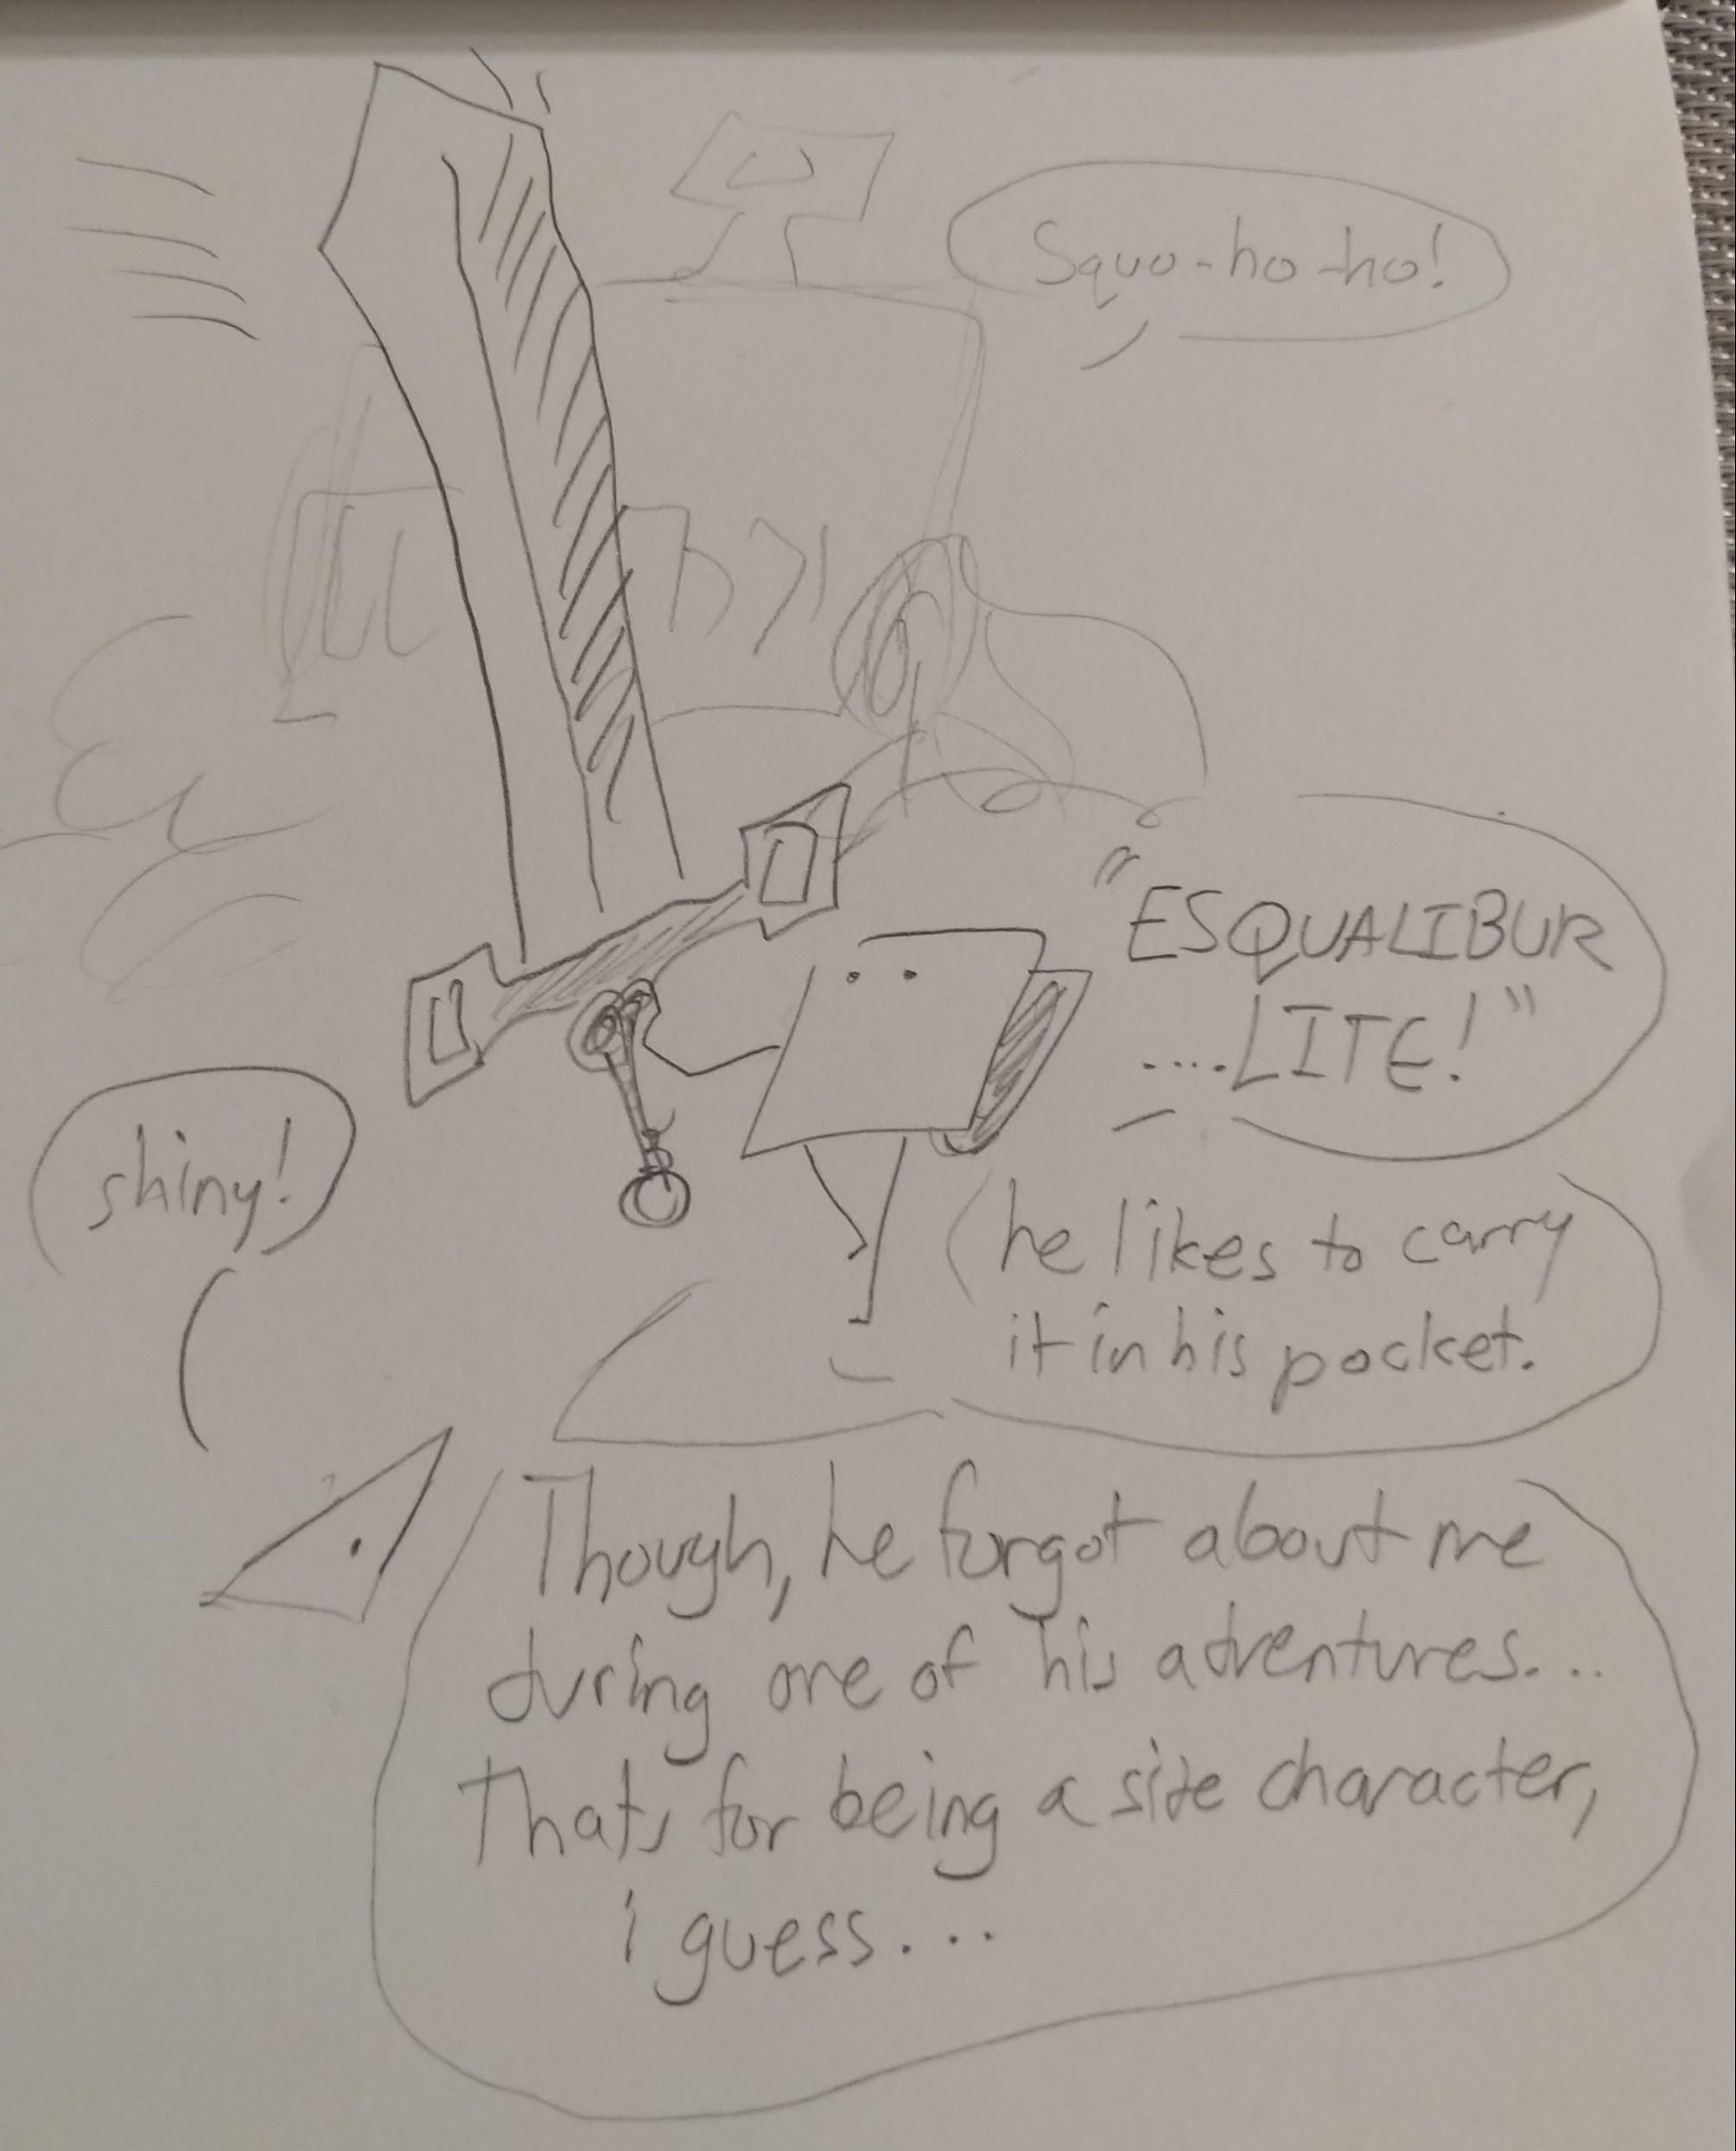 Squo-ho-ho!
"ESQUALIBUR
....LITE!"
shiny!
he likes to carry
it in his pocket.
Though, he forgot about me
during one of his adventures...
Thats for being a side character,
i guess...